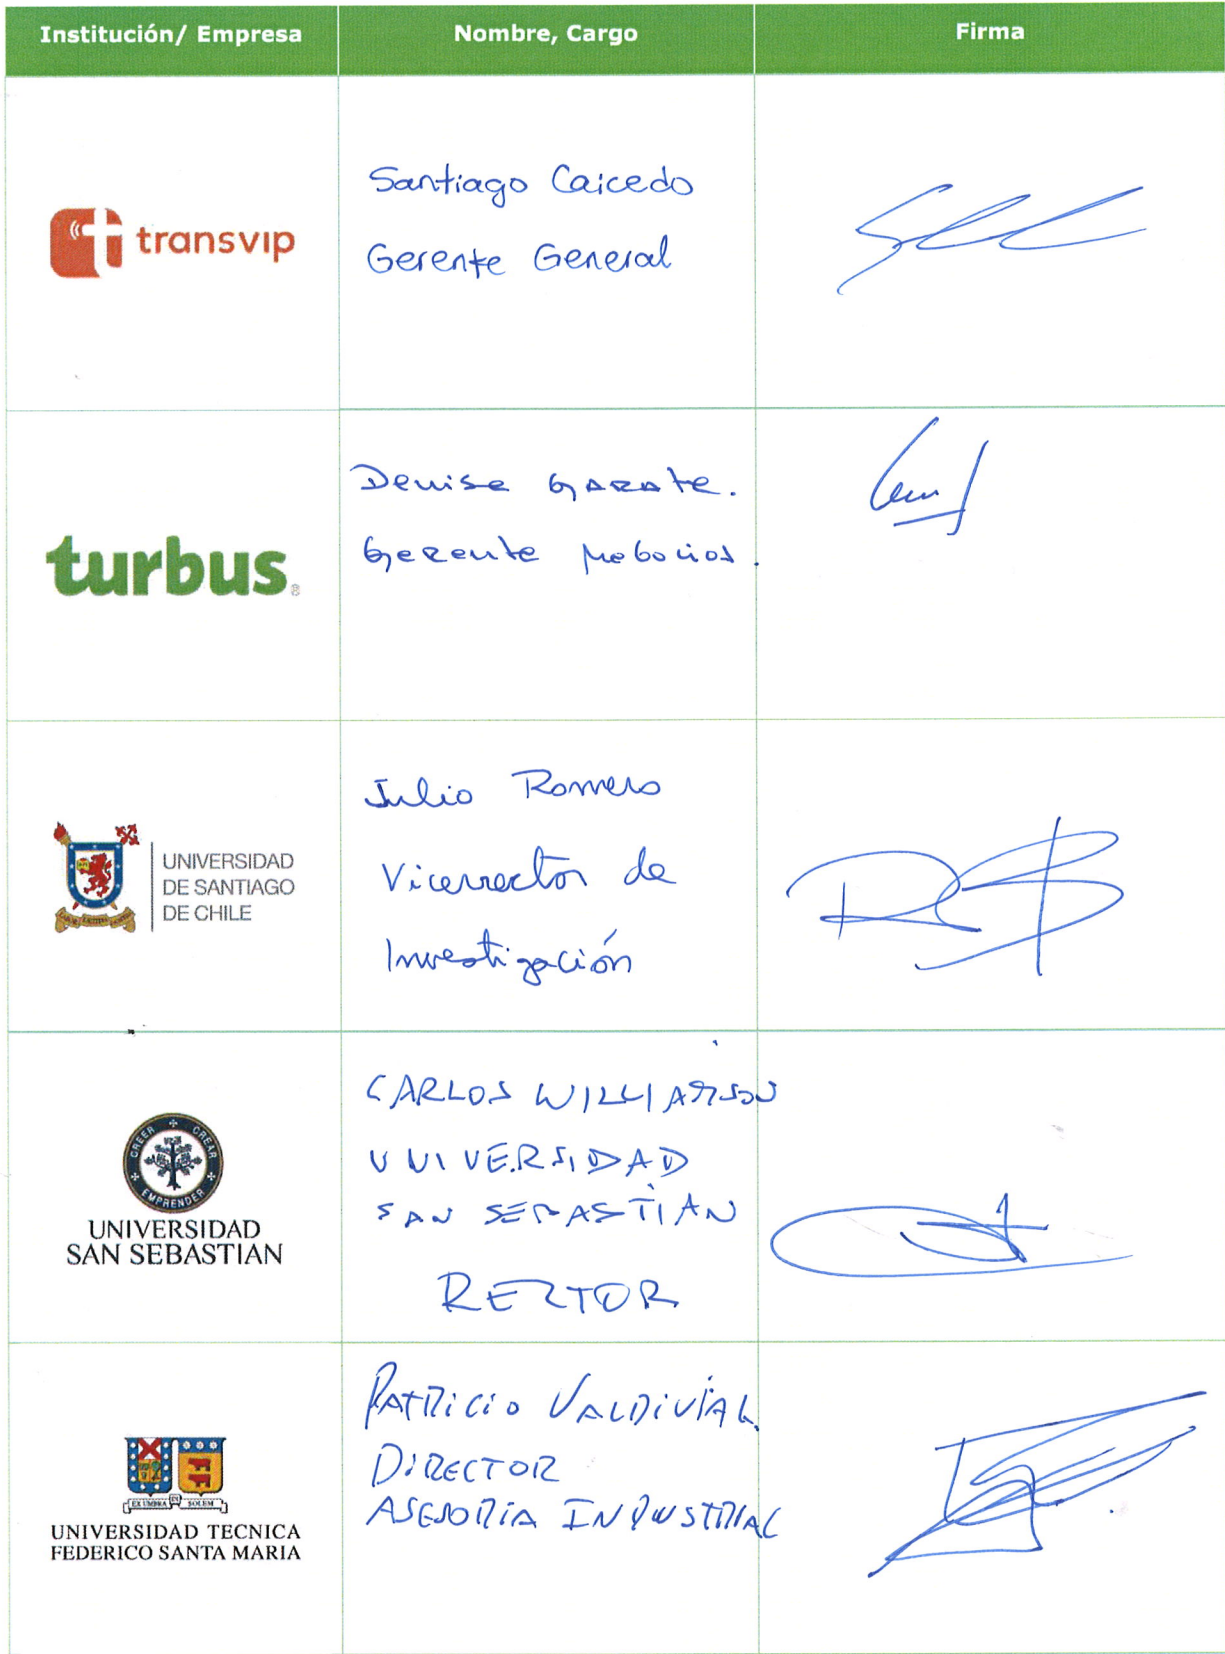 Institución/ Empresa
Nombre, Cargo
Firma
transvip
Santiago Caicedo
Gerente General
turbus
Denise Garate.
Gerente Negocios.
UNIVERSIDAD
DE SANTIAGO
DE CHILE
Julio Romero
Vicerrector de
Investigación
CREER CREAR
EMPRENDER
UNIVERSIDAD
SAN SEBASTIAN
CARLOS WILLIAMSON
UNIVERSIDAD
SAN SEBASTIAN
RECTOR
EX UMBRA IN SOLEM
UNIVERSIDAD TECNICA
FEDERICO SANTA MARIA
PATRICIO VALDIVIA L.
DIRECTOR
ASESORIA INDUSTRIAL